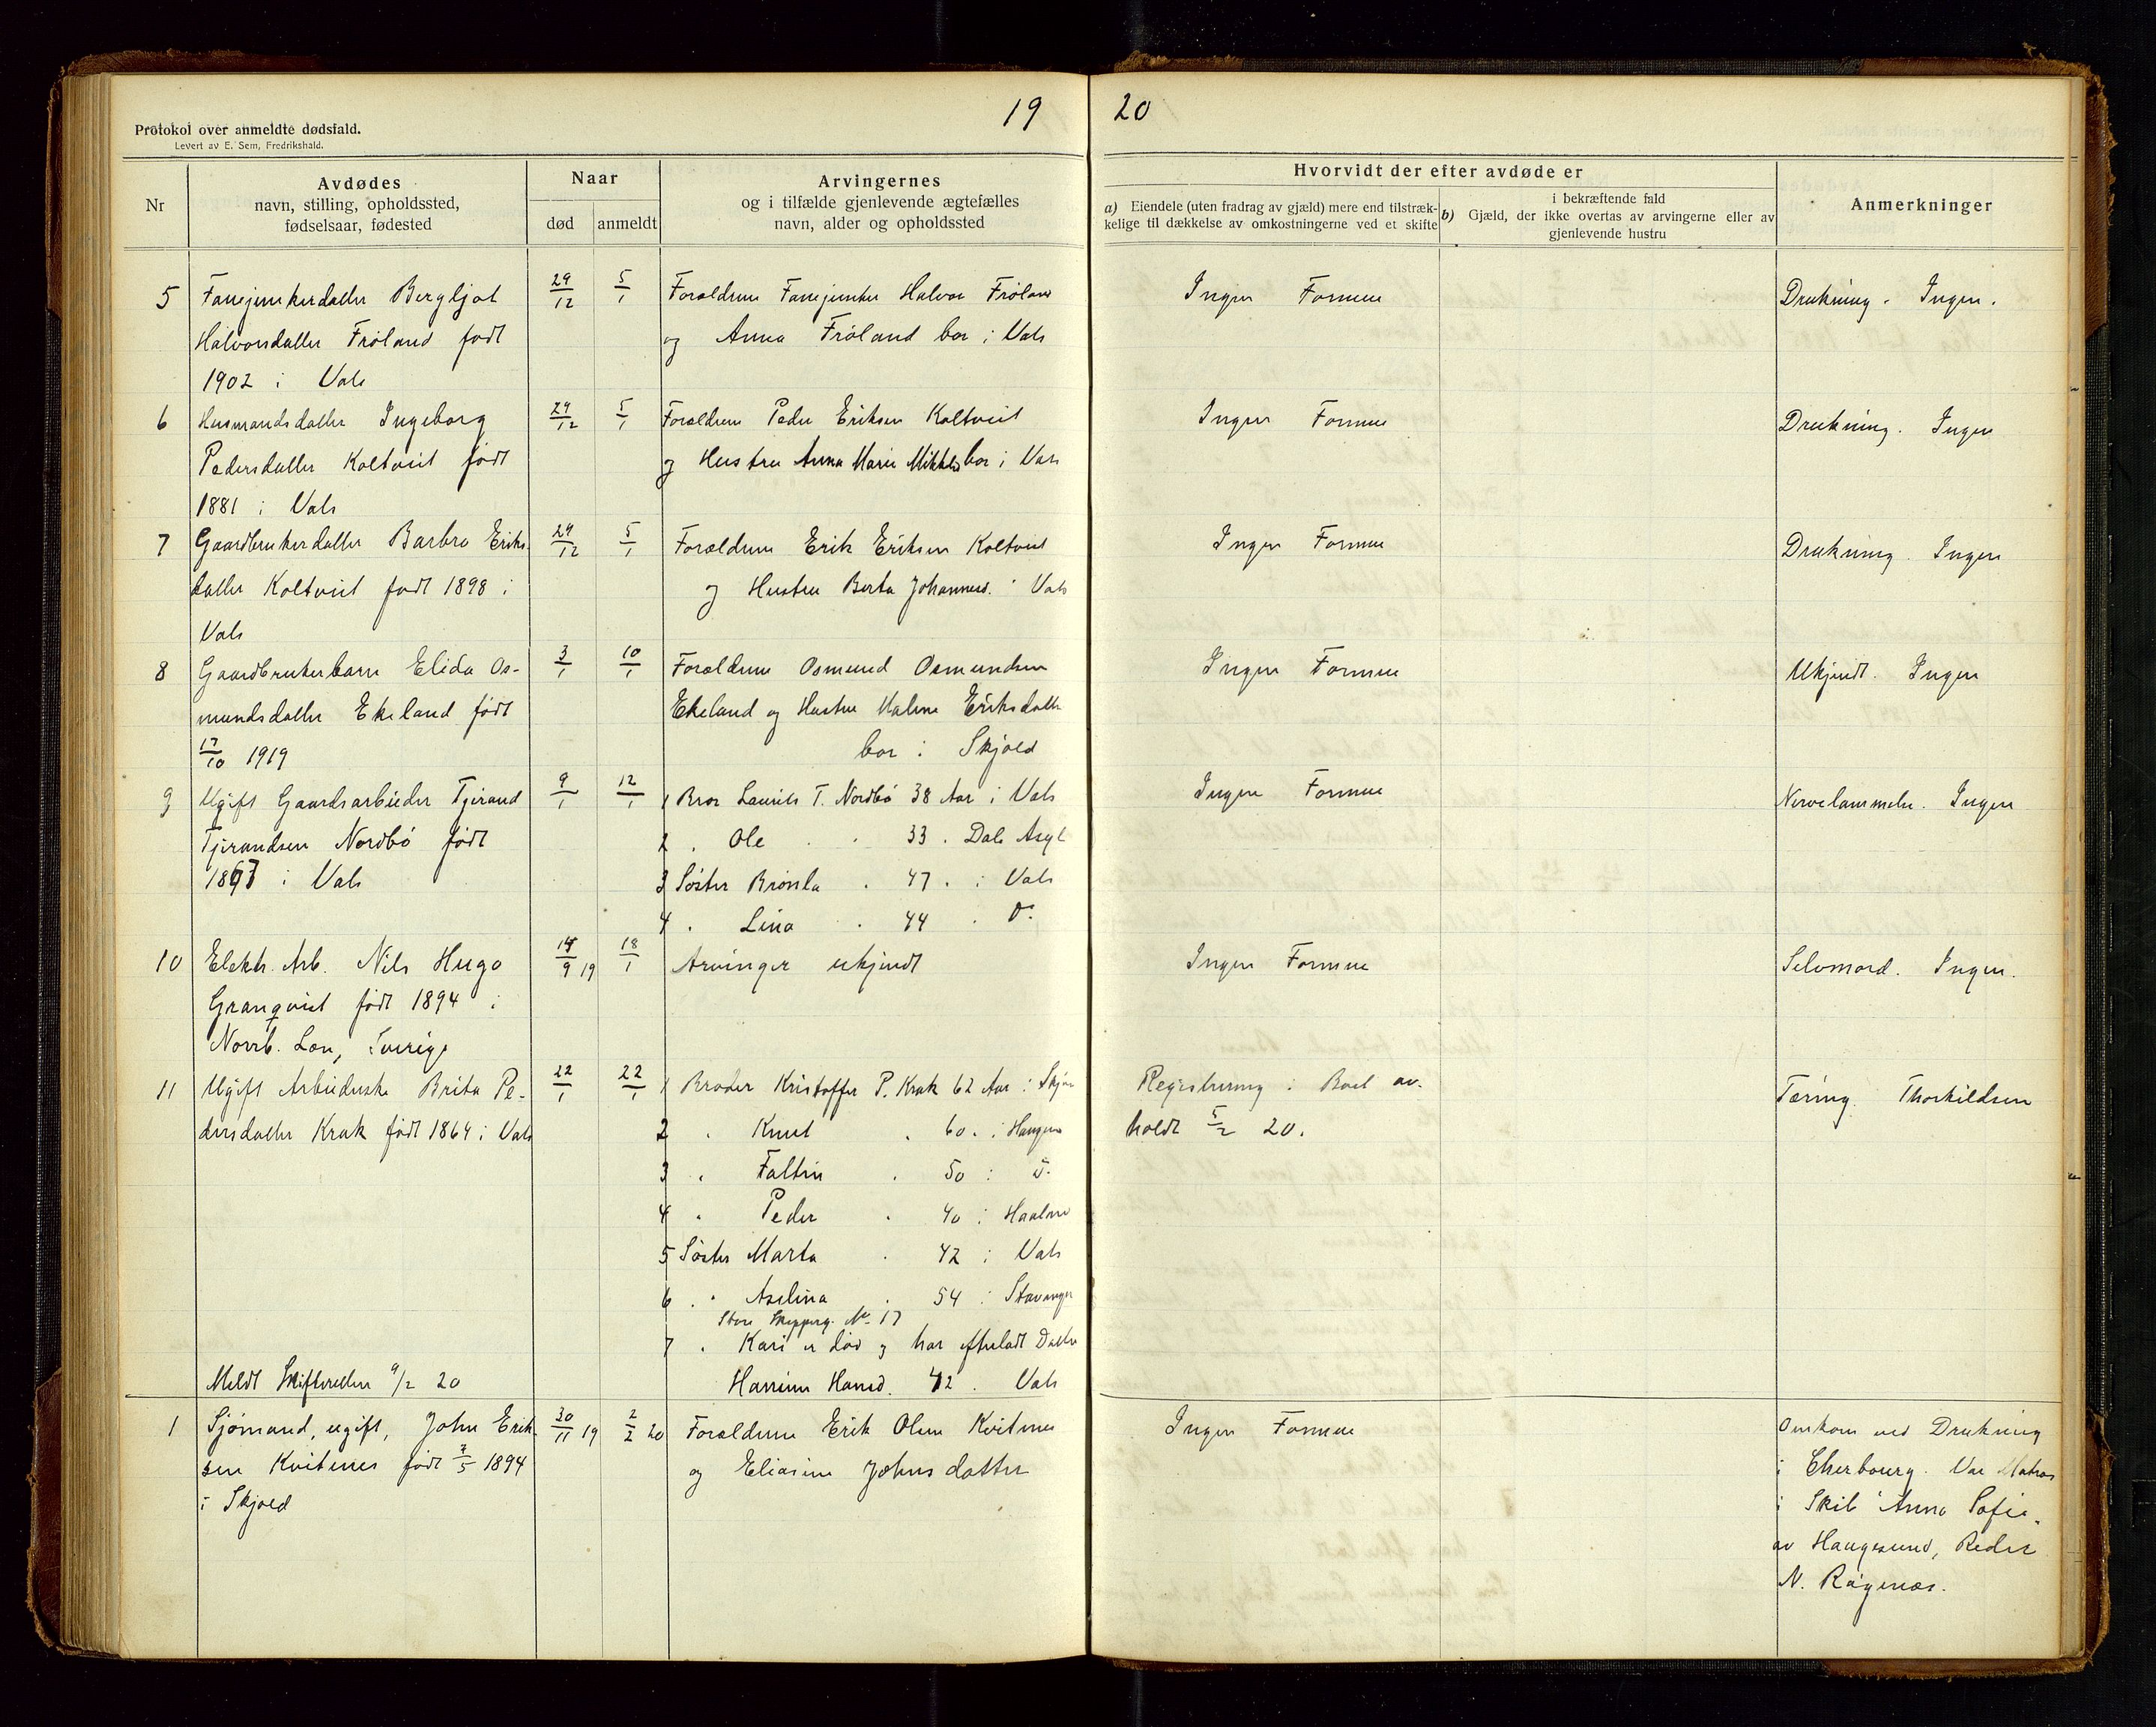 19
20
Protokol over anmeldte dødsfald.
Levert av E. Sem, Fredrikshald.
Nr
Avdødes
navn, stilling, opholdssted,
fødselsaar, fødested
Naar
død
anmeldt
Arvingernes
og i tilfælde gjenlevende ægtefælles
navn, alder og opholdssted
Hvorvidt der efter avdøde er
a) Eiendele (uten fradrag av gjæld) mere end tilstræk-
kelige til dækkelse av omkostningerne ved et skifte
i bekræftende fald
b) Gjæld, der ikke overtas av arvingerne eller av
gjenlevende hustru
Anmerkninger
5 Fanejunkerdatter Bergljot 29/12 5/1 Forældrene Fanejunker Halvor Fröland Ingen Formue Drukning. Ingen.
Halvorsdatter Fröland født og Anna Fröland bor i Vats
1902 i Vats
6 Husmandsdatter Ingeborg 29/12 5/1 Forældrene Peder Eriksen Koltveit Ingen Formue Drukning. Ingen
Pedersdatter Koltveit født og Hustru Anna Marie Mikkelsd bor i Vats
1881 i Vats
7 Gaardbrukerdatter Barbro Eriks- 29/12 5/1 Forældrene Erik Eriksen Koltveit Ingen Formue Drukning. Ingen
datter Koltveit født 1898 i og Hustru Berta Johannesd. i Vats
Vats
8 Gaardbrukerbarn Elida Os- 3/1 10/1 Forældrene Osmund Osmundsen Ingen Formue Ukjendt. Ingen
mundsdatter Ekeland født Ekeland og Hustru Malene Eriksdatter
17/10 1919 bor i Skjold
9 Ugift Gaardsarbeider Tjerand 9/1 12/1 1 Bror Laurits T. Nordbö 38 Aar i Vats Ingen Formue Nervelammelse. Ingen
Tjerandsen Nordbö født 2 . Ole . . 33 . Dale Asyl
i Vats 3 Söster . 47 . i Vats
4 . Lina . 44 . D.
10 Elektr. Arb. Nils Hugo 14/9 19 18/1 Arvinger ukjendt Ingen Formue Selvmord. Ingen.
Granqvist født 1894 i
Norrb. Len, Sverige
11 Ugift Arbeiderske Brita Pe- 22/1 22/1 1 Broder Kristoffer P. Krak 62 Aar i Registrering i Boet av- Tæring. Thorkildsen
dersdatter Krak født 1864 i Vats 2 . Knut . 60 . i holdt 5/2 20.
3 . Faltin . 50 i D.
4 . Peder . 40 i
5 Söster Marta . 42 i Vats
6 . . Aselina . 54 i Stavanger
Store Skipperg. No 17
7 . Kari er död og har efterladt Datter
Meldt Skifteretten 9/2 20 Hansd. 42 . Vats
1 Sjömand, ugift, John Erik- 30/11 19 2/2 20 Forældrene Erik Olsen Kvitenes Ingen Formue Omkom ved Drukning
sen Kvitenes født 7/5 1894 og Eliasine Johnsdatter i Cherbourg. Var Matros
i Skjold i Skib "Anna Sofie"
av Haugesund, Reder
N. Rögenæs.